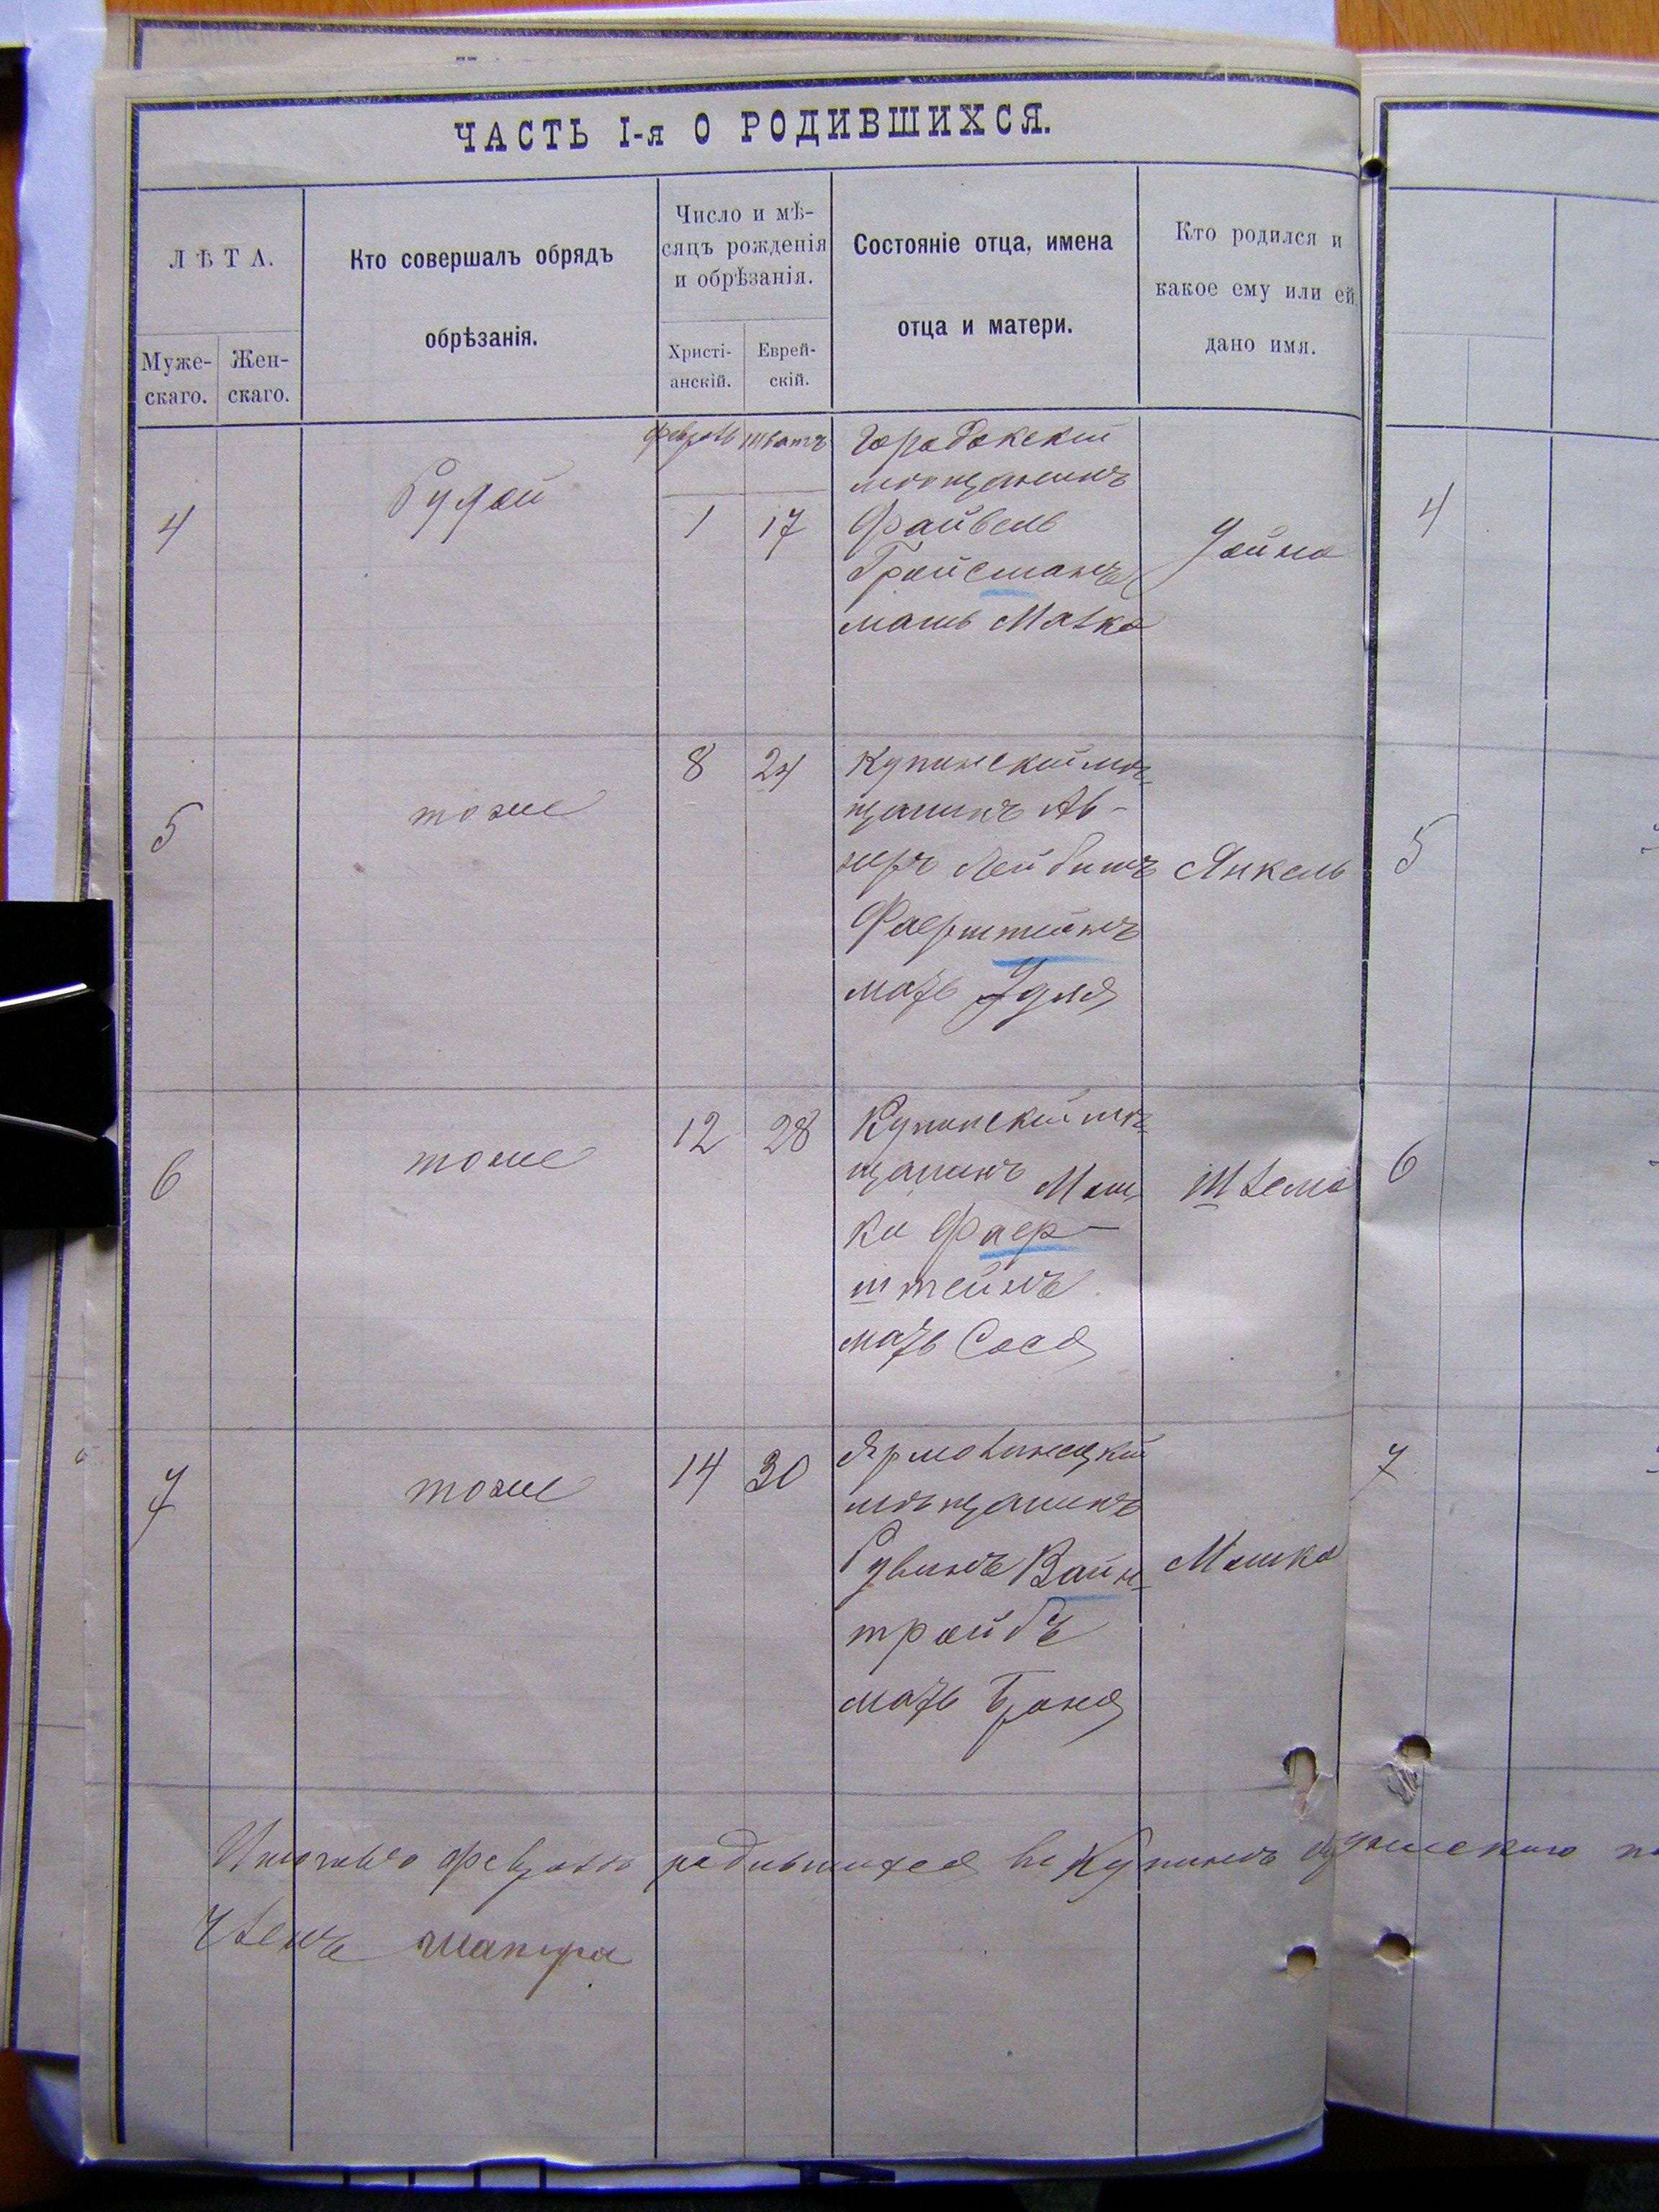 ЧАСТЬ I-я О РОДИВШИХСЯ.
ЛѢТА.
Муже-
скаго.
Жен-
скаго.
Кто совершалъ обрядъ
обрѣзанія.
Число и мѣ-
сяцъ рожденія
и обрѣзанія.
Христі-
анскій.
Еврей-
скій.
Состояніе отца, имена
отца и матери.
Кто родился и
какое ему или ей
дано имя.
февраль шватъ
4
Рудой
1
17
Городокский
мѣщанинъ
Файвель
Гройсманъ
мать Малка
4
5
тоже
8
24
Купинский мѣ-
щанинъ Ав-
неръ Лейбишъ
Фаерштейнъ
мать Удля
Янкель
5
6
тоже
12
28
Купинский мѣ-
щанинъ Мош-
ко Фаер-
штейнъ
мать Сося
Шлема
6
7
тоже
14
30
Ярмолинецкий
мѣщанинъ
Рувинъ Вайн-
тройбъ
мать Броня
Мошко
7
февраль родившихся в Купинѣ
Членъ Шапира